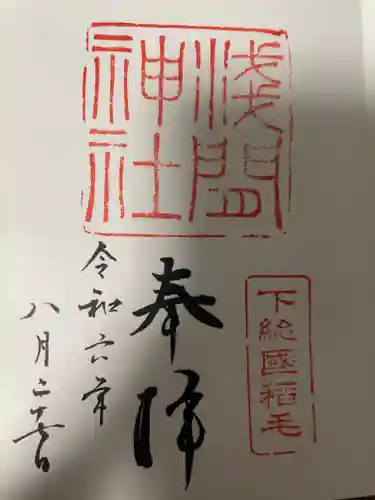 浅間
神社
下総國稲毛
奉拝
令和六年
八月二十六日